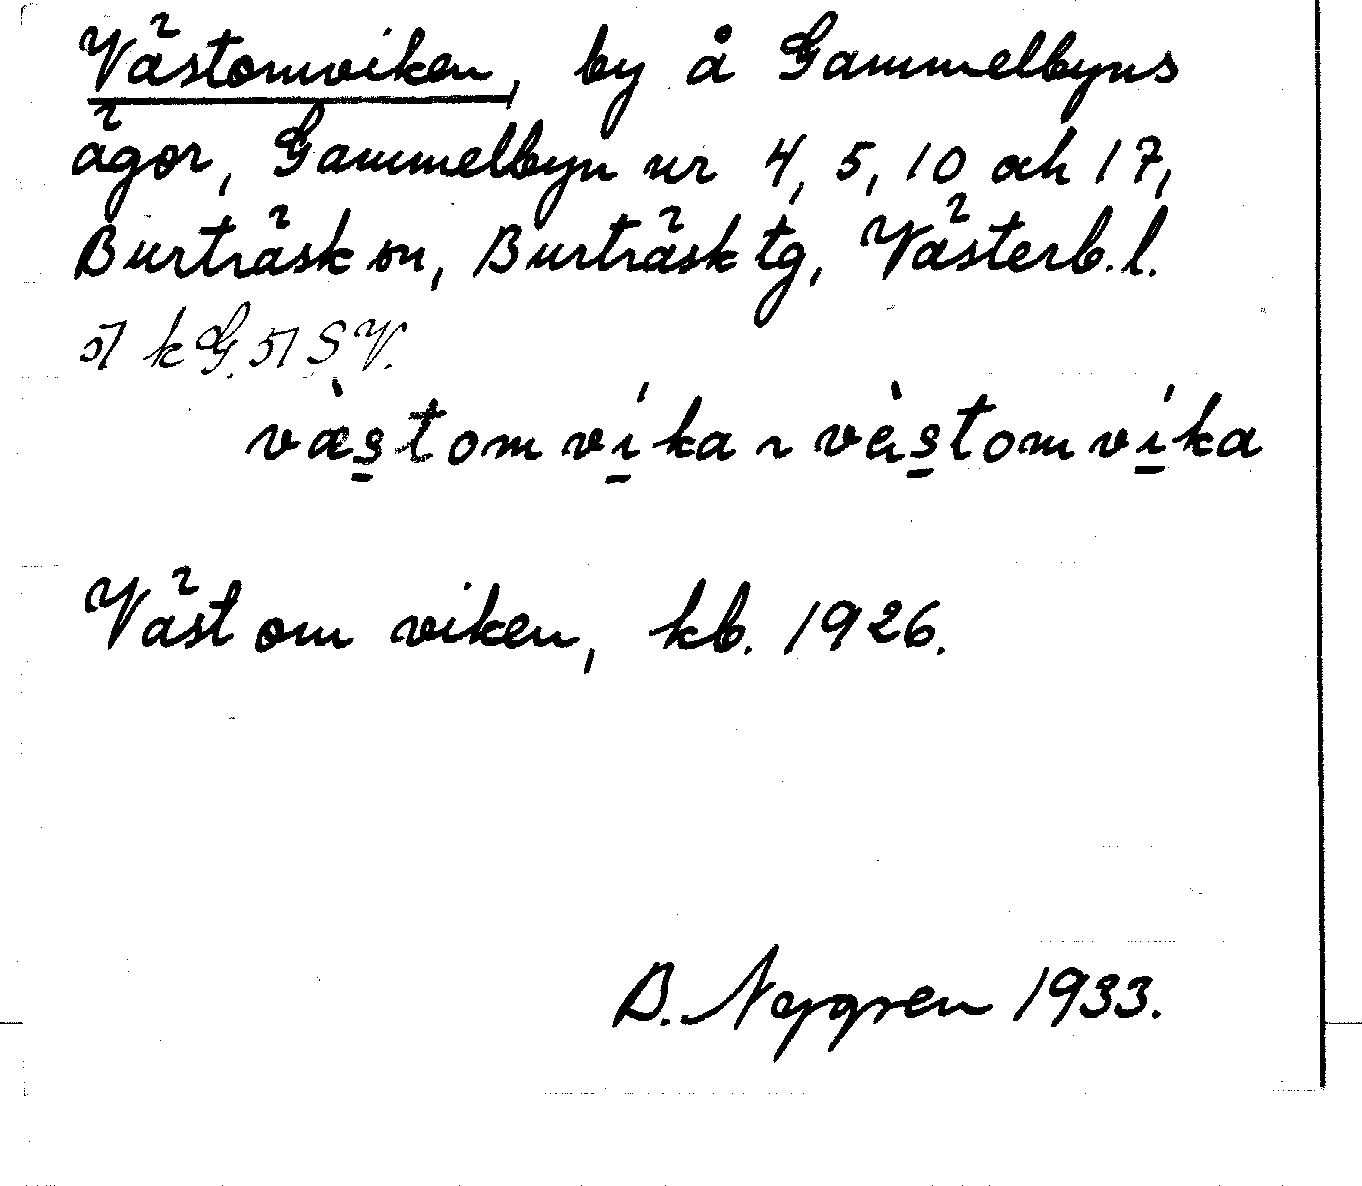 Västomviken, by å Gammelbyns
ägor, Gammelbyn nr 4, 5, 10 och 17,
Burträsk sn, Burträsk tg, Västerb. l.
51 kG. 51 SV.
væ̀stom víka ~ vèstom víka
Väst om viken, kb. 1926.
B. Nygren 1933.